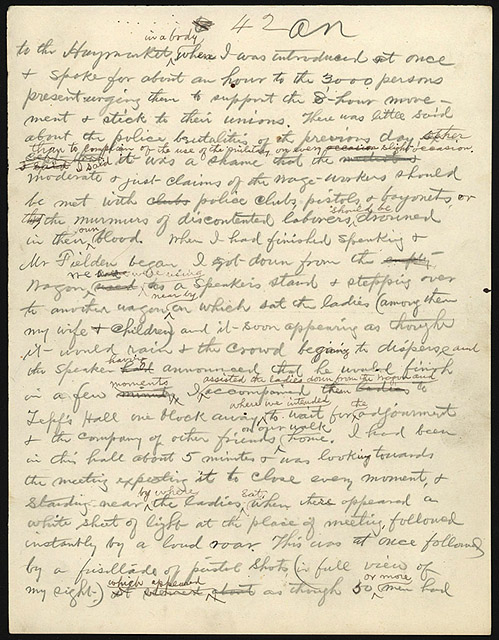 42
in a body
to the Haymarket, where I was introduced at once
& spoke for about an hour to the 3000 persons
present urging them to support the 8-hour move-
ment & stick to their unions. There was little said
about the police brutalities of the previous day, other
than to complain of the use of the military on every slight occasion.
I said it was a shame that the
moderate & just claims of the wage-workers should
be met with clubs police clubs, pistols & bayonets, or
the murmurs of discontented laborers should be drowned
in their own blood. When I had finished speaking &
Mr Fielden began I got down from the empty
wagon we were using as a speakers stand & stepping over
to another wagon near by on which sat the ladies (among them
my wife & children) and it soon appearing as though
it would rain & the crowd beginning to disperse and
the speaker having announced that he would finish
in a few moments, I assisted the ladies down from the wagon and
accompanied them to
Zepf's Hall one block away, where we intended to wait for the adjournment
& the company of other friends on our walk home. I had been
in this hall about 5 minutes & was looking towards
the meeting expecting it to close every moment, &
standing near by where the ladies sat, when there appeared a
white sheet of light at the place of meeting, followed
instantly by a loud roar. This was at once followed
by a fusillade of pistol shots (in full view of
my sight) which appeared as though 50 or more men had